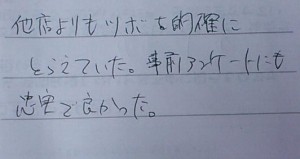 他店よりもツボを的確に
とらえていた。事前アンケートにも
忠実で良かった。